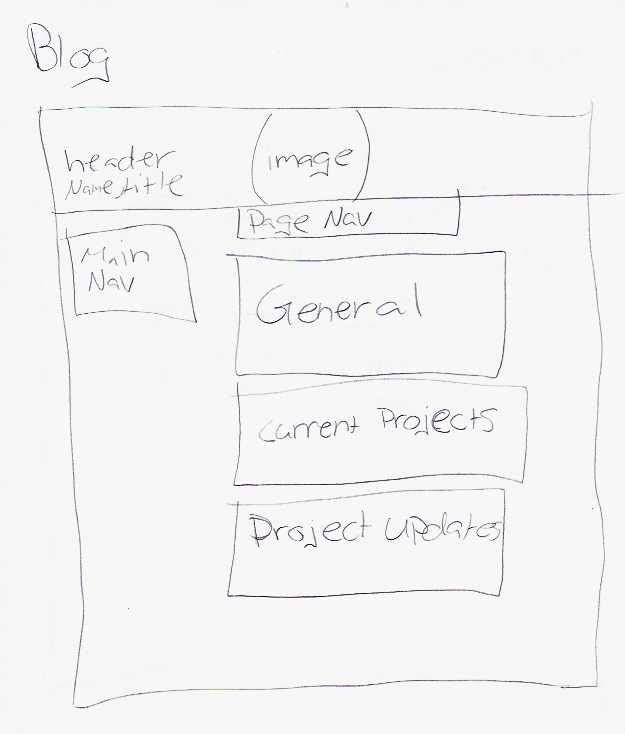 Blog
header
Name, title
image
Page Nav
Main
Nav
General
Current Projects
Project Updates